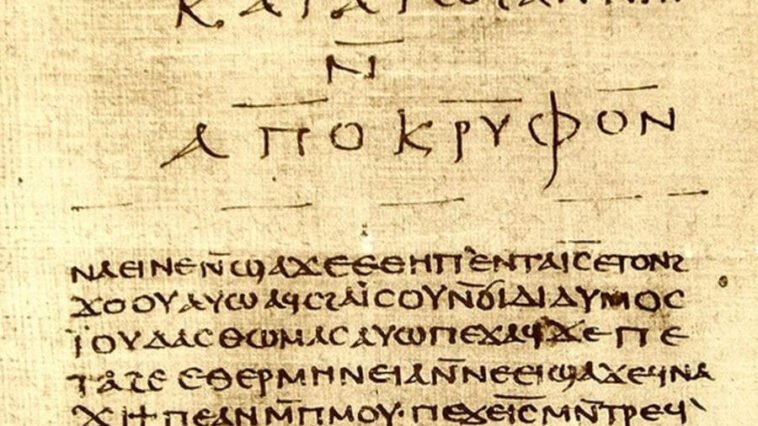 ⲛ̄
ⲁⲡⲟⲕⲣⲩⲫⲟⲛ
ⲛⲁⲉⲓⲛⲉⲛ̄ϣⲁϫⲉⲉⲑⲏⲡⲉⲛⲧⲁⲓ̅ⲥ̅ⲉⲧⲟⲛϩ
ϫⲟⲟⲩⲁⲩⲱⲁϥⲥϩⲁⲓ̈ⲥⲟⲩⲛ̄ϭⲓⲇⲓⲇⲩⲙⲟⲥ
ⲓ̈ⲟⲩⲇⲁⲥⲑⲱⲙⲁⲥⲁⲩⲱⲡⲉϫⲁϥϫⲉⲡⲉ
ⲧⲁϩⲉⲉⲑⲉⲣⲙⲏⲛⲉⲓⲁⲛ̄ⲛⲉⲉⲓϣⲁϫⲉϥⲛⲁ
ϫⲓϯⲡⲉⲁⲛⲙ̄ⲡⲙⲟⲩ·ⲡⲉϫⲉⲓ̅ⲥ̅ⲙⲛ̄ⲧⲣⲉϥ